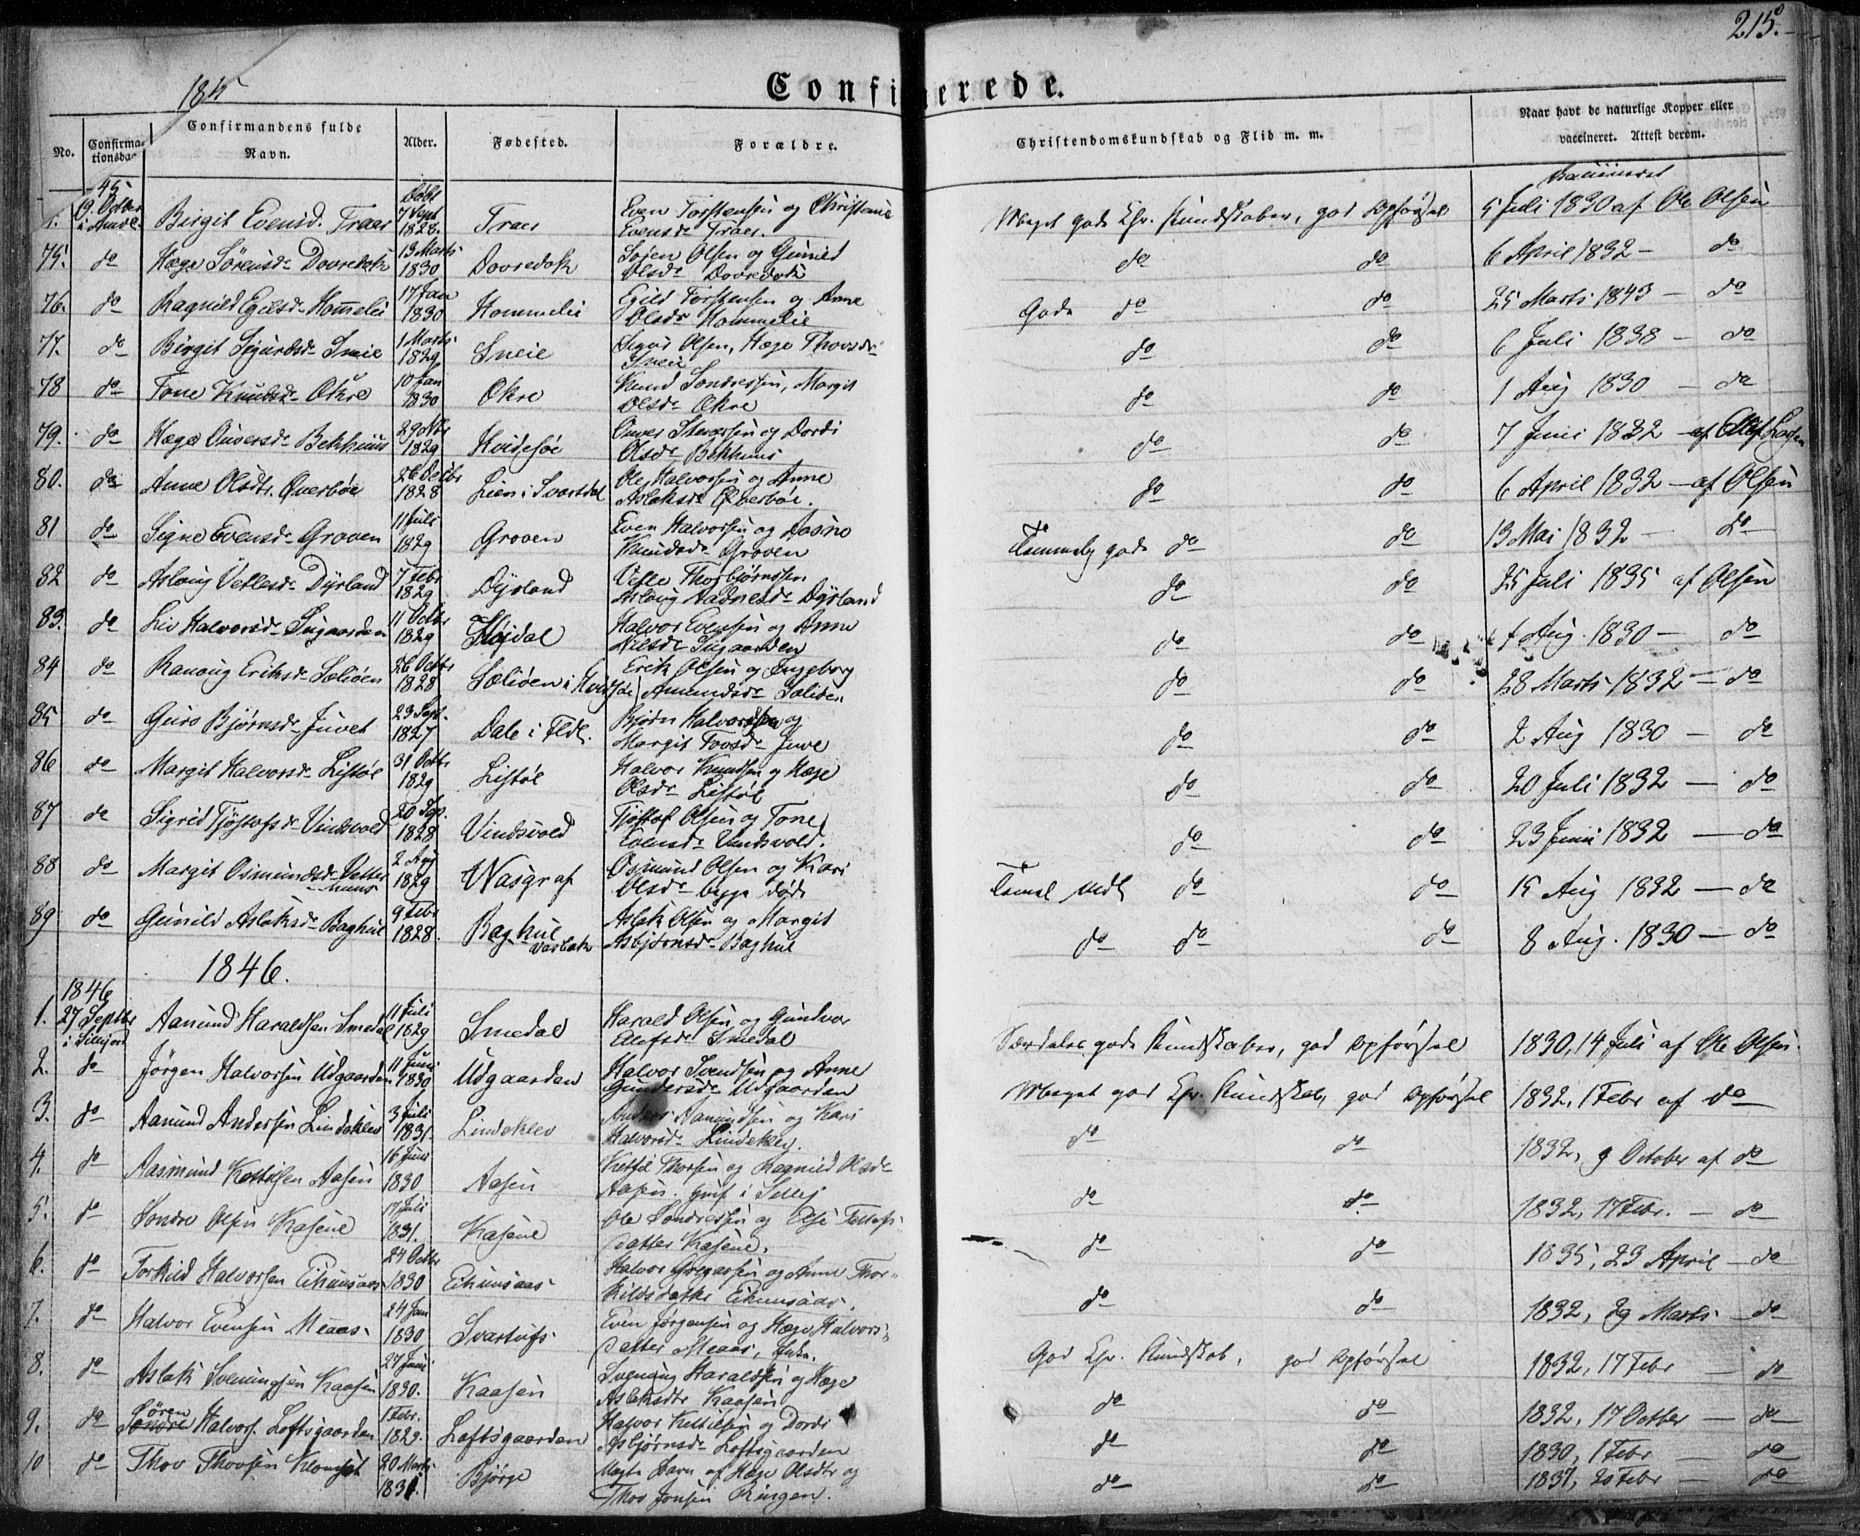 215.
1845
Confirmerede.
No.
Confirmationsdag
Confirmandens fulde Navn.
Alder.
Fødested.
Forældre.
Christendomskundskab og Flid m. m.
Naar havt de naturlige Kopper eller vaccineret. Attest derom.
45 Octbr Birgit Evensd. Traer Døbt 7 Sept 1828. Traer Even Torstensen og Christene Evensd. Traer. Meget gode Chr. Kundskaber, god Opførsel vaccineret 5 Juli 1830 af Ole Olsen
75. do Hæge Sörensd. Dovredok 13 Marts 1830 Dovredok Sören Olsen og Gunild Olsd. Dovredok do do 6 April 1832 — do
76. do Ragnild Egilsd. Hommelie 17 Jan 1830 Hommelie Egild Torstensen og Anne Olsdr Hommelie Gode do do 25 Marts 1843 — do
77. do Birgit Sigurdsd. Sneie 1 Marts 1829 Sneie Sigur Olsen, Hæge Thovsdr Sneie do do 6 Juli 1838 — do
78 do Tone Knudsd. Okre 10 Jan 1830 Okre Knud Sondresen, Margit Olsd. Okre do do 1 Aug 1830 — do
79. do Hæge Anversd. Bekhuus 1829 Hvidesøe Olsd. Bekhuus do do 7 Juni 1832 — af
80. do Anne Olsdtr. Øverbøe 26 Octbr 1828 Lien i Svartdal Ole Halvorsen og Anne Aslaksd. Øverbøe. do do 6 April 1832 — af Olsen
81 do Signe Evensd. Groven 11 Juli 1829 Groven Even Halvorsen og Aasne Knudsd. Groven Temmelig gode do do 13 Mai 1832 — do
82 do Aslaug Vetlesd. Dyrland 7 Febr 1829 Dyrland Vetle Thorbjørnsen Aslaug Aadnesd. Dyrland do do 25 Juli 1835 af Olsen
83. do Liv Halvorsd. Sugaarden 11 Octbr 1829 Flatdal Halvor Evensen og Anne Nielsd. Sugaarden do do Aug. 1830 — do
84 do Ranoug Eriksd. Soliøen 26 Octbr 1828 Soliøen i Erik Olsen og Ingeborg Amundsd. Soliøen do do 28 Marts 1832 — do
85 do Guro Bjørnsd. Juvet 23 Sept. 1827 Dale i Fldl. Bjørn Halvorsen og Margit Tovsd. Juve do do 2 Aug 1830 — do
86 do Margit Halvorsd. Listøl 31 Octbr 1829 Listøl Halvor Knudsen og Hæge Olsd. Listøl do do 20 Juli 1832 — do
87 do Sigrid Tjøstofsd. Vindsvold 20 Sep. 1828 Vindsvold Tjøstof Olsen og Tone Evensd. Vindsvold. do do 23 Juni 1832 — do
88 do Margit Osmundsd. 2 Aug 1829 Wasgraf Osmund Olsen og Kari Olsd. begge døde Temel. do do 15 Aug 1832 — do
89 do Gunild Aslaksd. Baghul 9 Febr 1828. Baghul Aslak Olsen og Margit Asbjörnsd. Baghul do do do 8 Aug. 1830 — do
1846.
1846
1. 27 Septbr i Sillejord Aamund Haraldsen Smedal 11 Juli 1829 Smedal Harald Olsen og Gundvor Olafsd. Smedal Særdeles gode Kundskaber, god Opførsel 1830, 14 Juli af Ole Olsen.
2. do Jörgen Halvorsen Udgaarden 11 Juni 1830 Udgaarden Halvor Svendsen og Anne Gundersd. Udgaarden Meget god Chr. Kundskab, god Opførsel 1832, 1 Febr af do
3. do Aamund Andersen Lindeklev 3 Juli 1831. Lindeklev Anders Aamundsen og Kari Halvorsd. Lindeklev. do do 1832, 9 October af do
4. do Aasmund Kettilsen Aasen 16 Juni 1830 Aasen Kettil Thorsen og Ragnild Aasen. do do 1832, 17 Febr. — do
5. do Sondre Olsen Kasene 17 Juli 1831. Kasene Ole Sondresen og datter Kasene. do do 1835, 23 April — do
6. do Torkild Halvorsen Eikunsaas 24 Octbr 1830 Eikunsaas Halvor Gregarsen og Anne Thorkildsdatter Eikunsaas. do do 1832, 29 Marts — do
7. do Halvor Evensen Meaas 24 Jan 1830 Svartufs Even Jørgensen og Hæge Halvorsdatter Meaas, Enke. God Chr. Kundskab, god Opførsel 1832, 17 Febr do
8. do Aslak Sveningsen Kaasen 27 Juni 1830. Kaasen Svenung Haraldsen og Hæge Aslaksdtr Kaasen do do 1832, 17 Octber — do
9. do Sören Halvors. Loftsgaarden 1 Febr. 1829. Loftsgaarden Halvor Kettilsen og Dordi Asbjørnsd. Loftsgaarden do do 1830, 1 Febr — do
10 do Thov Thovsen Klomset 20 Marts 1831. Bjørge Uægte Barn af Hæge Olsdtr og Thov Jonsen Ringen. do do 1837, 20 Febr — do